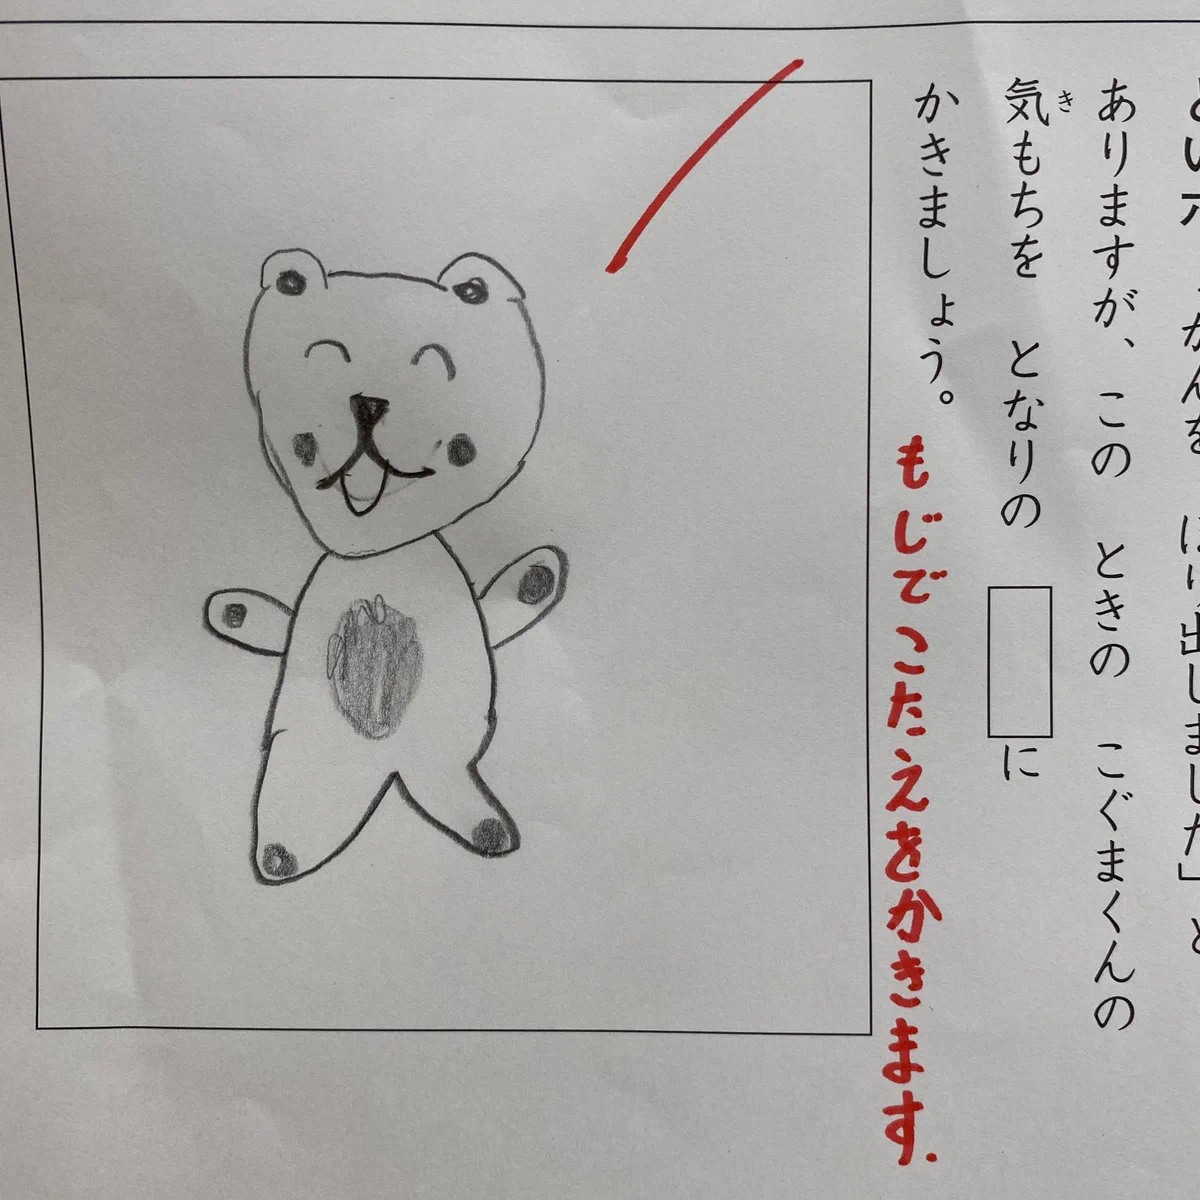 かんを　ほり出しました」と
ありますが、この　ときの　こぐまくんの
気もちを　となりの　に
き
かきましょう。
もじでこたえをかきます.